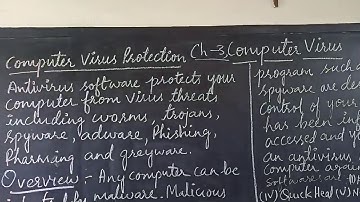 Computer Virus Protection
Antivirus software protects your
computer from virus threats
including worms, trojans,
spyware, adware, Phishing,
Pharming and greyware.
Overview - Any computer can be
by malware. Malicious
Ch-3, Computer Virus
program such a
spyware are des
control of your
has been inf
accessed and y
an antivirus
Computer again
Software! are
(IV) Quick Heal (V) N